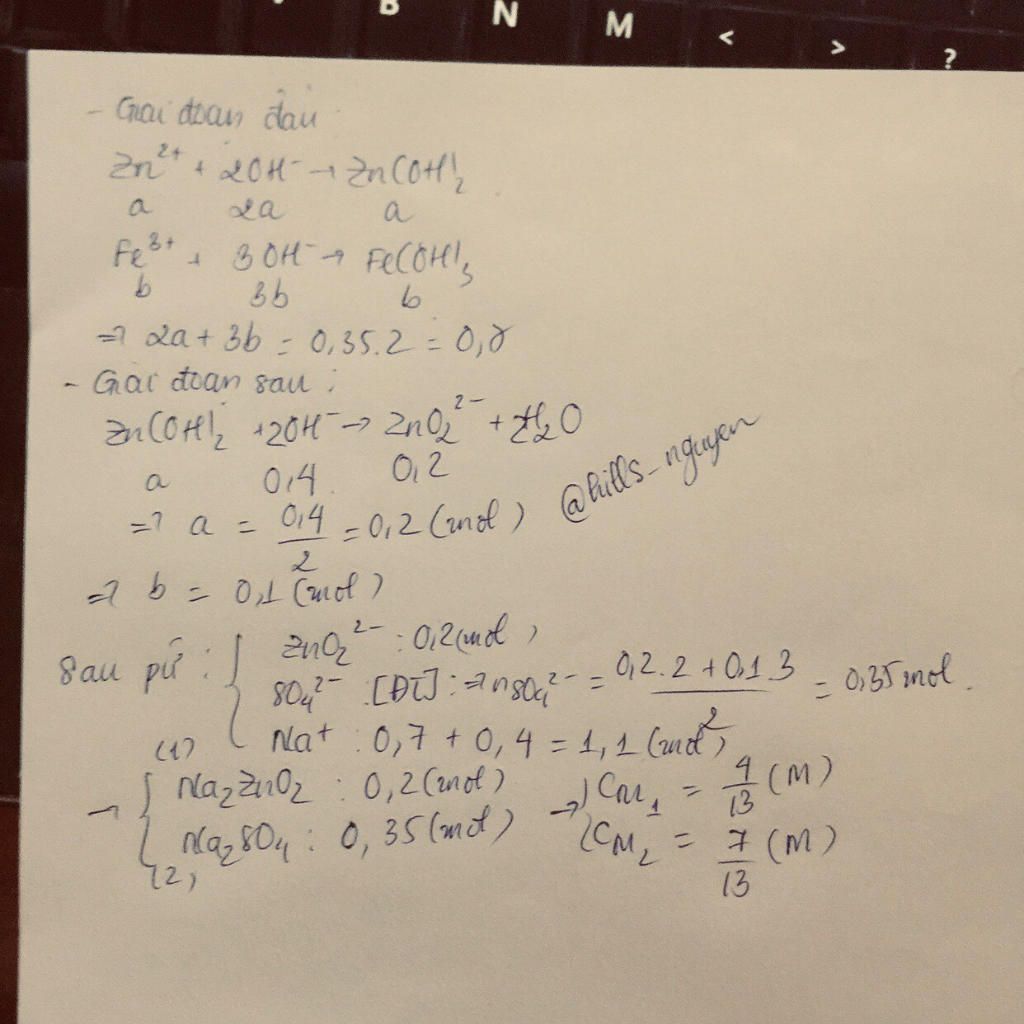 B N M < > ?
- Giai đoạn đầu:
Zn²⁺ + 2OH⁻ → Zn(OH)₂
a 2a a
Fe³⁺ + 3OH⁻ → Fe(OH)₃
b 3b b
=> 2a + 3b = 0,35.2 = 0,7
- Giai đoạn sau:
Zn(OH)₂ + 2OH⁻ → ZnO₂²⁻ + H₂O
a 0,4 0,2
=> a = 0,4/2 = 0,2 (mol)
@hills_nguyen
=> b = 0,1 (mol)
Sau pứ: { ZnO₂²⁻ : 0,2 (mol)
SO₄²⁻ : [ĐT] : => nSO₄²⁻ = (0,2.2 + 0,1.3)/2 = 0,35 mol.
Na⁺ : 0,7 + 0,4 = 1,1 (mol)
(1)
→ { Na₂ZnO₂ : 0,2 (mol) → { CM₁ = 4/13 (M)
Na₂SO₄ : 0,35 (mol) CM₂ = 7/13 (M)
(2)